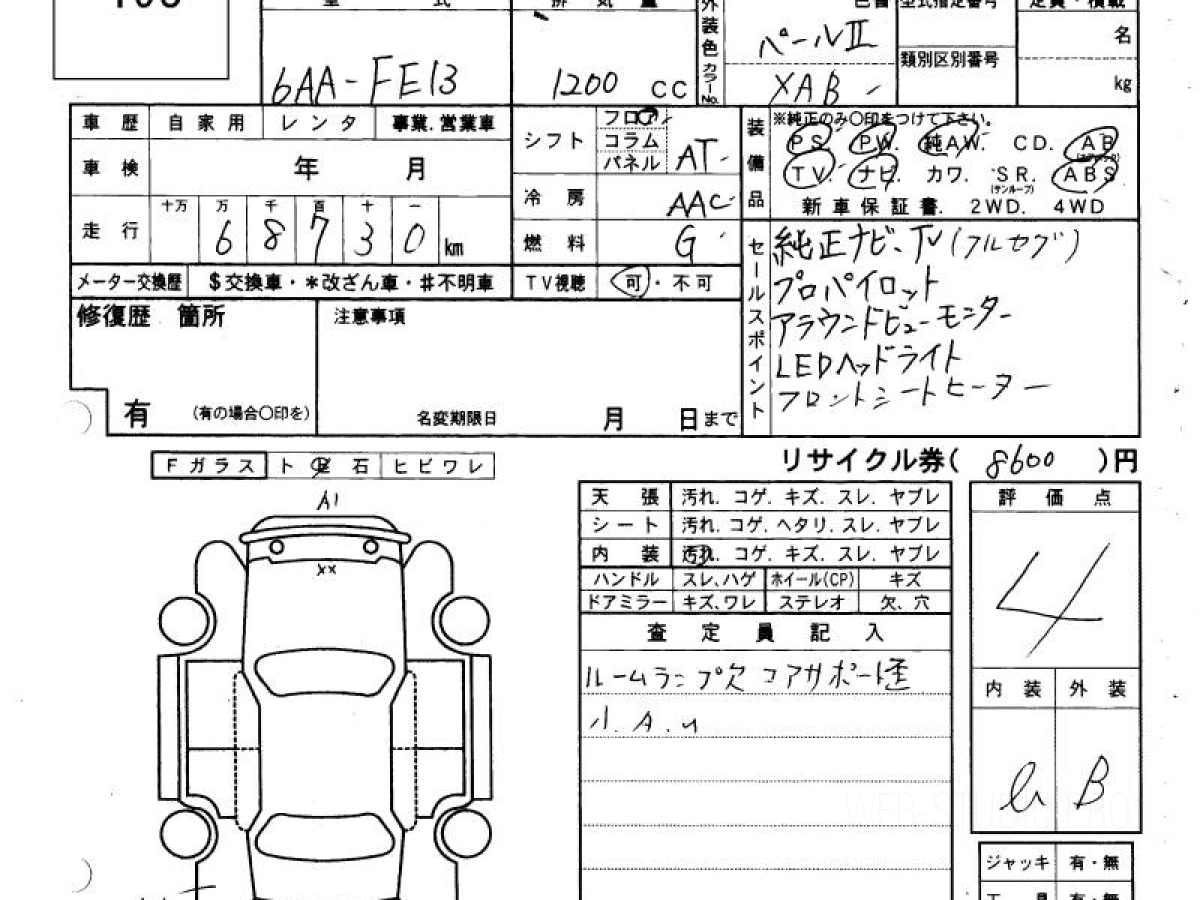 型 式
排 気 量
外装色
カラーNo.
定員・積載
パールⅡ
名
6AA-FE13
1200 CC
XAB
類別区別番号
kg
車 歴 自 家 用 レ ン タ 事業.営業車
シフト フロア コラム パネル AT
装備品 ※純正のみ〇印をつけて下さい。
PS. PW. 純AW. CD. AB
(エアバック)
TV. ナビ. カワ. SR. ABS
(サンルーフ)
新 車 保 証 書. 2WD. 4WD
車 検 年 月
冷 房 AAC
走 行 十万 万 千 百 十 一
6 8 7 3 0 km
燃 料 G
メーター交換歴 $交換車・*改ざん車・#不明車
TV視聴 可・不可
セールスポイント
純正ナビ、TV(フルセグ)
プロパイロット
アラウンドビューモニター
LEDヘッドライト
フロントシートヒーター
修復歴 箇所
有 (有の場合〇印を)
注意事項
名変期限日 月 日まで
リサイクル券( 8600 )円
Fガラス ト 石 ヒビワレ
A1
XX
天 張 汚れ. コゲ. キズ. スレ. ヤブレ
シート 汚れ. コゲ. ヘタリ. スレ. ヤブレ
内 装 汚れ. コゲ. キズ. スレ. ヤブレ
ハンドル スレ、ハゲ ホイール(CP) キズ
ドアミラー キズ、ワレ ステレオ 欠、穴
査 定 員 記 入
ルームランプ欠 コアサポート歪
小.A.u
評 価 点
4
内 装 外 装
B
ジャッキ 有・無
工 具 有・無